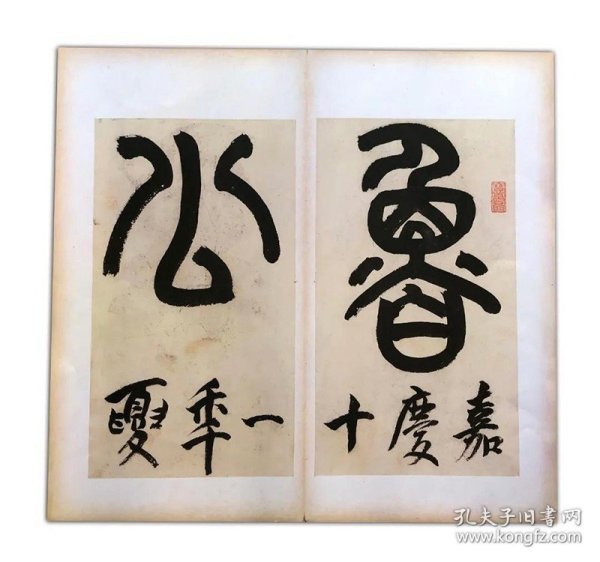 魯
嘉慶十
公
一秊夏
孔夫子旧书网
www.kongfz.com